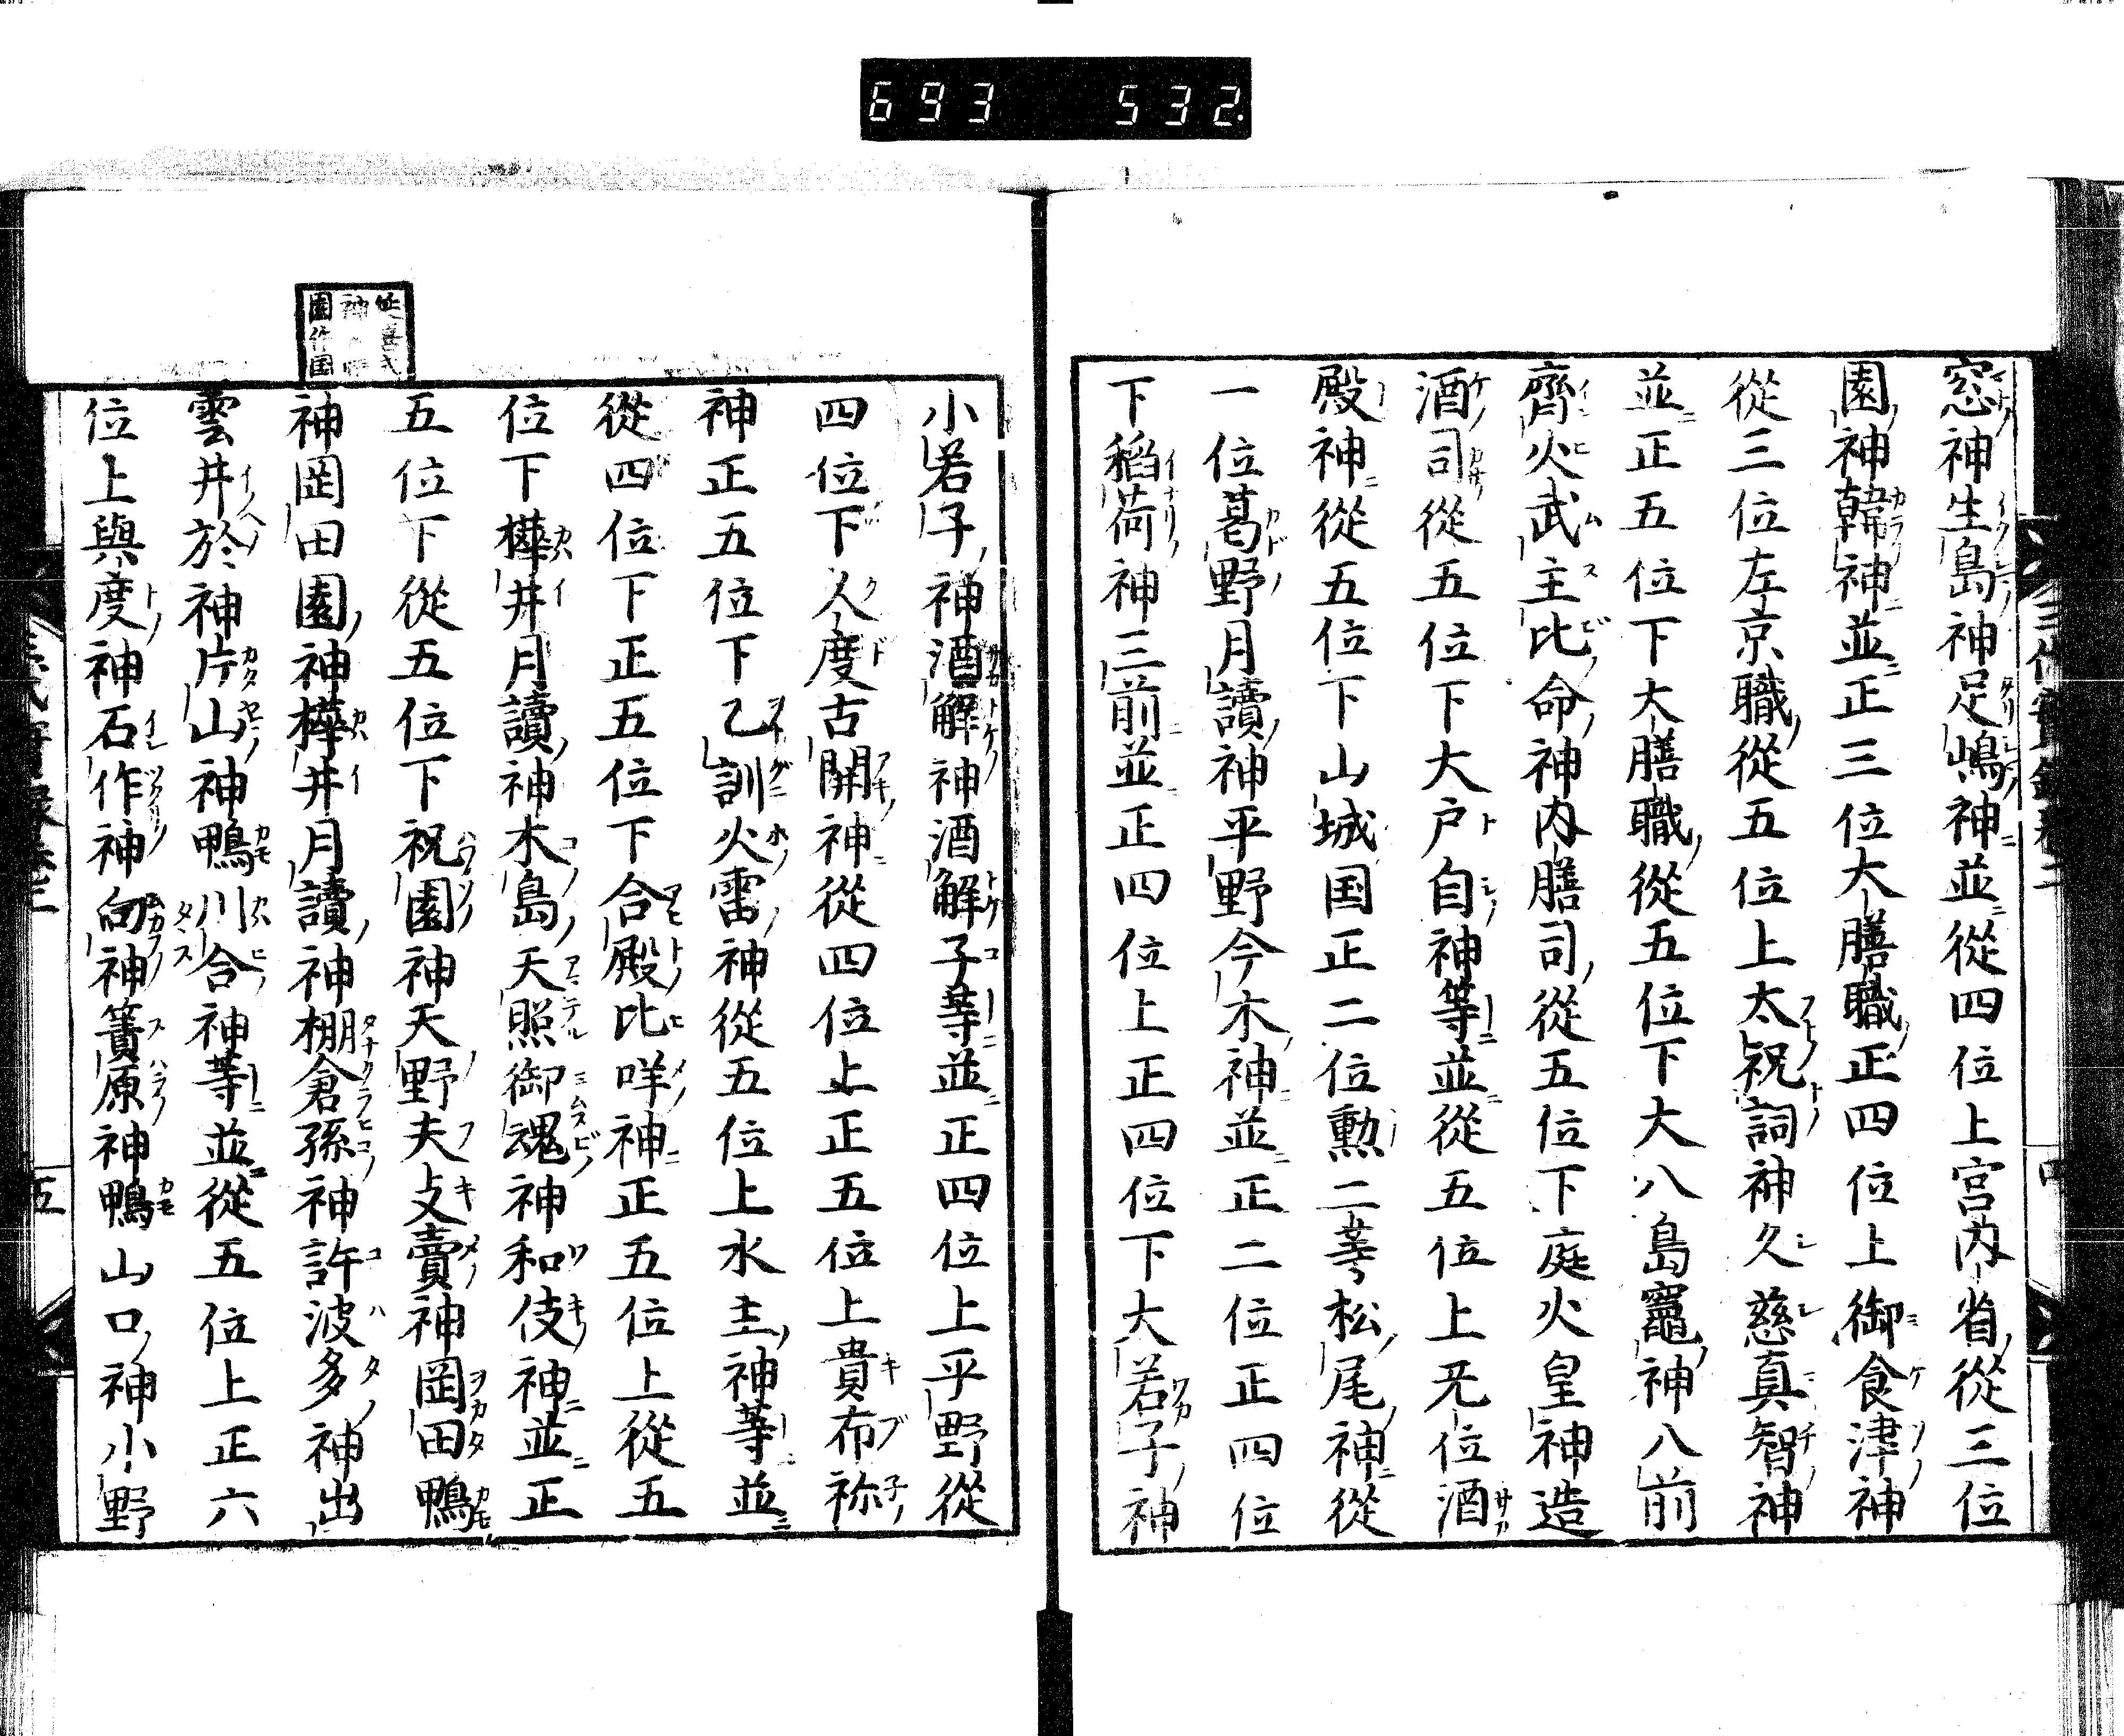 693 532
窓神生島神足嶋神並從四位上宮内省從三位
園神韓神並正三位大膳職正四位上御食津神
從三位左京職從五位上太祝詞神久慈真智神
並正五位下大膳職從五位下大八島竈神八前
齊火武主比命神内膳司從五位下庭火皇神造
酒司從五位下大戸自神等並從五位上旡位酒
殿神從五位下山城国正二位勲二等松尾神從
一位葛野月讀神平野今木神並正二位正四位
下稻荷神三前並正四位上正四位下大若子神
小若子神酒解神酒解子等並正四位上平野從
四位下久度古開神從四位上正五位上貴布祢
神正五位下乙訓火雷神從五位上水主神等並
從四位下正五位下合殿比咩神正五位上從五
位下樺井月讀神木島天照御魂神和伎神並正
五位下從五位下祝園神天野夫攴賣神岡田鴨
神岡田園神樺井月讀神棚倉孫神許波多神出
雲井於神片山神鴨川合神等並從五位上正六
位上與度神石作神向神簀原神鴨山口神小野
園作国
五